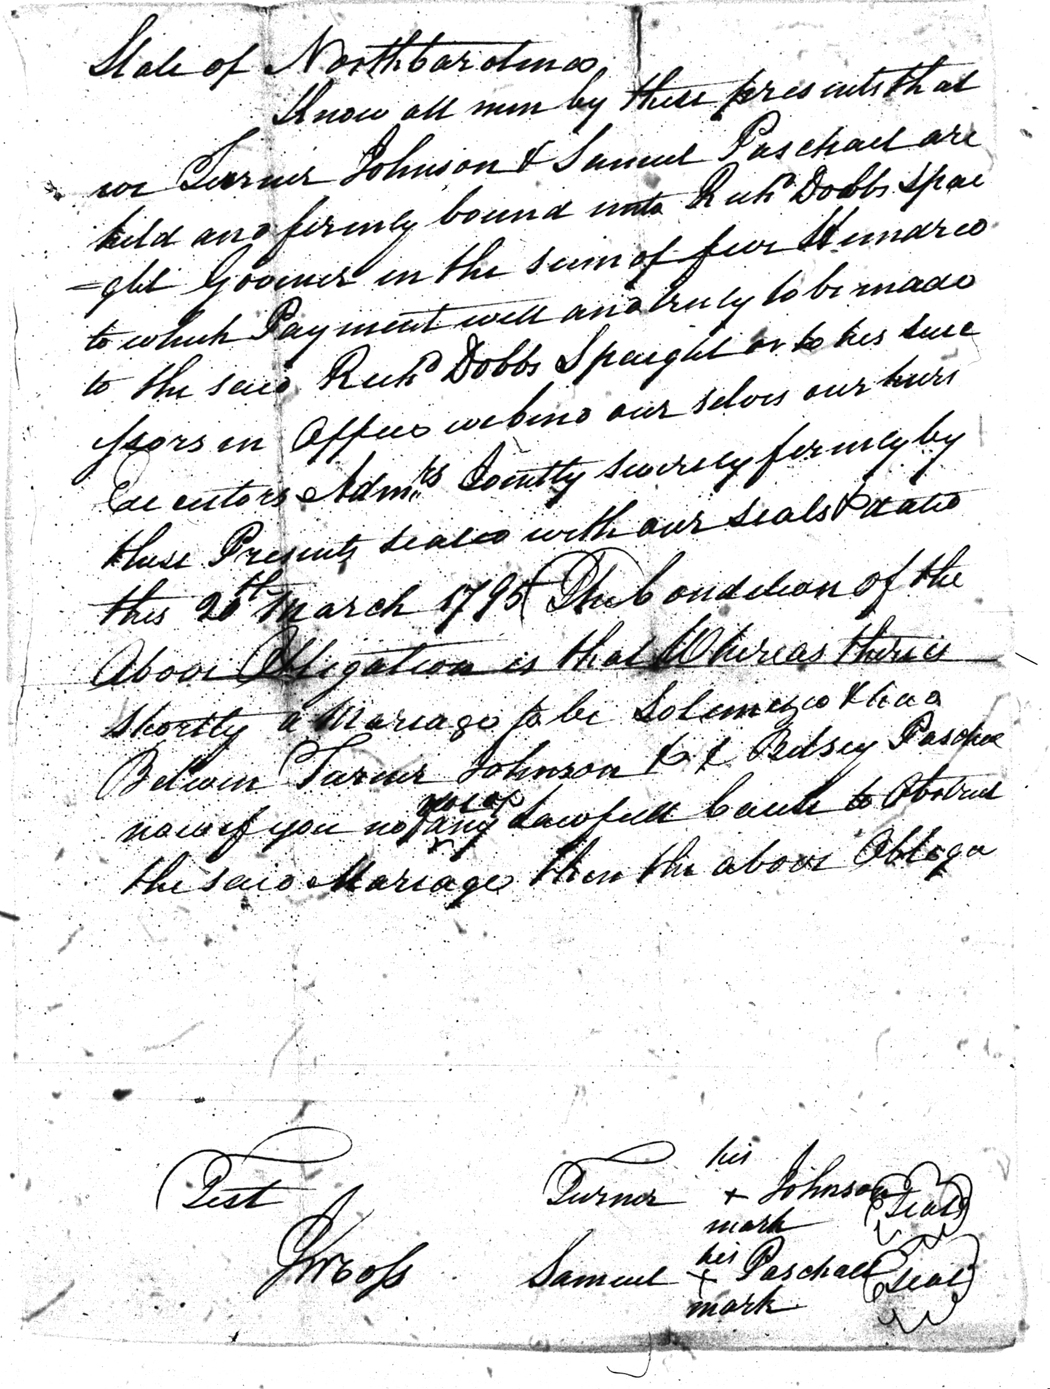 State of North Carolina
Know all men by these presents that
we Turner Johnson & Samuel Paschael are
held and firmly bound unto Richd Dobbs Spai
=ght Goovner in the sum of five Hundred
to which Payment well and truly to be made
to the said Richd Dobbs Spaight or to his suce
ssors in Office we bind our selves our heirs
Executors Admrs Jointly severely firmly by
these Presents sealed with our seals & dated
this 20th March 1795 The Condition of the
Above Obligation is that Whereas there is
shortly a Mariage to be Solemized & had
Betwen Turner Johnson & Betsey Paschal
now if you no any Lawfull Cause to Obstruct
the said Mariage then the above Obliga
his
Test Turner + Johnson (Seal)
mark
his
Samuel + Paschael (Seal)
mark